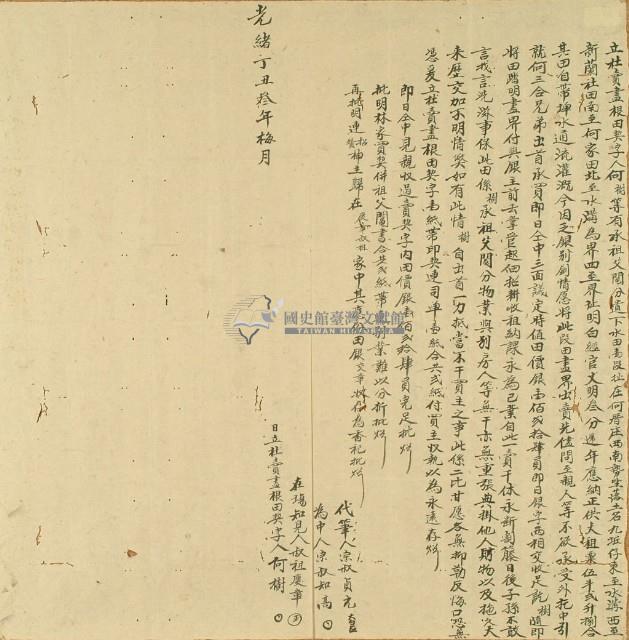 立杜賣盡根田契字人何樹等有承祖父鬮分遺下水田壹段址在何厝庄西南勢坐落土名九坵仔東至水溝西至
新蘭社田南至何家田北至水溝為界四至界址明白經官丈明叁分逐年應納正供大租粟伍斗弍升捌合
其田自帶埤水通流灌溉今因乏銀別創情愿將此段田盡界出賣先儘問至親人等不欲承受外托中引
就何三合兄弟出首承買即日仝中三面議定時值田價銀壹佰弍拾肆員即日銀字兩相交收足訖樹隨即
將田踏明盡界付與銀主前去掌管起佃招耕收租納課永為己業自此一賣千休永斷葛藤日後子孫不敢
言找言洗滋事保此田係樹承祖父鬮分物業與別房人等無干亦無重張典掛他人財物以及拖欠大
來歷交加不明情獘如有此情樹自出首一力抵當不干買主之事此係二比甘愿各無抑勒反悔口恐無
憑爰立杜賣盡根田契字壹紙帶印契連司單壹紙合共弍紙付買主收執以為永遠存炤
即日仝中見親收過賣契字內田價銀壹佰弍拾肆員完足批炤
批明林家買契併祖父鬮書合共弍紙帶別業難以分折批炤
再批明連招神主歸在叔祖家中其田銀交章收存為香祀批炤
代筆人宗叔貞元
為中人宗叔知高
在場知見人叔祖慶章
日立杜賣盡根田契字人何樹
光緒丁丑叁年梅月
國史館臺灣文獻館
TAIWAN HISTORICA